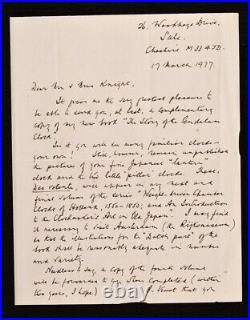 26, Hawthorn Drive,
Sale,
Cheshire M33
17 March 1977.
Dear Mr & Mrs Knight,
It gives me the very greatest pleasure to
be able to send you, at last, a complimentary
copy of my new book "The Story of the
Clock."
In it you will see many familiar clocks -
your own! Still, however, remain unpublished
the picture of your fine Japanese "lantern"
clock and the two little "pillar" clocks. These,
Deo volente, will appear in my next and
final volume of the series "Weight-Driven Chamber
Clocks of Holland, 1550-1850; and An Introduction
to the Clockmaker's Art in Old Japan". I may find
it necessary to visit Amsterdam (the Rijksmuseum)
so that the illustrations for the "Dutch part" of the
book shall be reasonably adequate in number
and variety.
Needless to say, a copy of the fourth volume
will be forwarded to you when completed (within
two years, I hope) that you